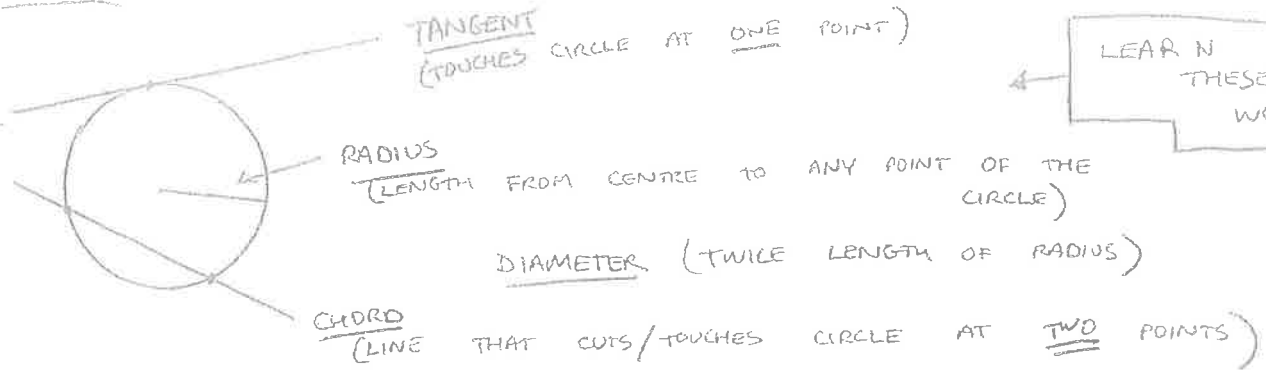 TANGENT
(TOUCHES CIRCLE AT ONE POINT)
LEARN
THESE
RADIUS
(LENGTH FROM CENTRE TO ANY POINT OF THE
CIRCLE)
DIAMETER (TWICE LENGTH OF RADIUS)
CHORD
(LINE THAT CUTS/TOUCHES CIRCLE AT TWO POINTS)